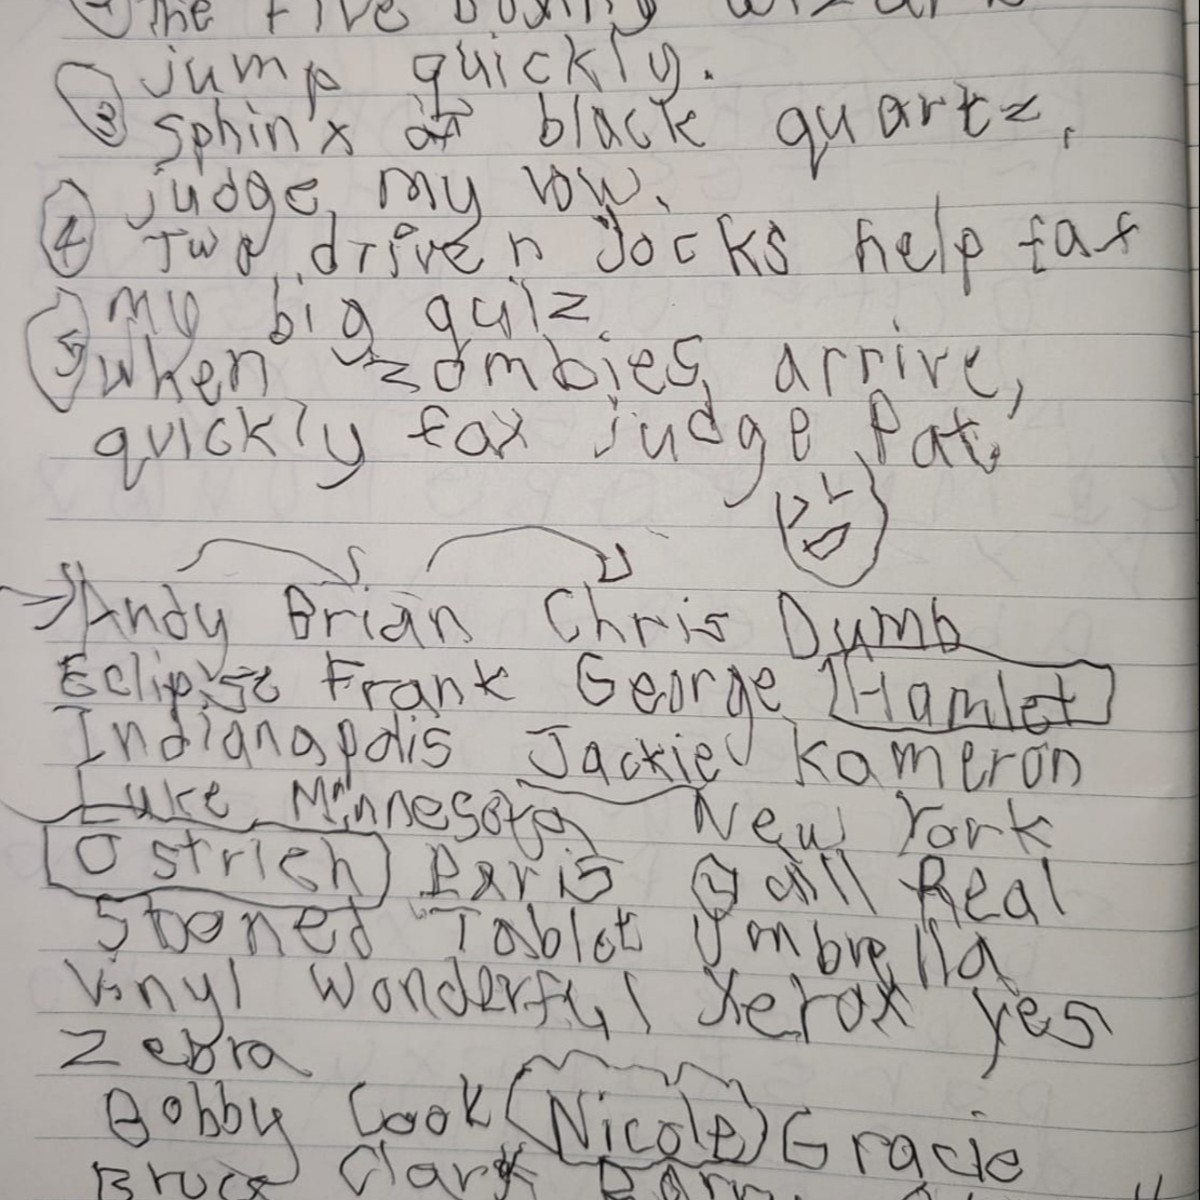 The Five boxing wizards
jump quickly.
③ Sphinx of black quartz,
judge my vow.
④ Two driven Jocks help fax
my big quiz
⑤ when zombies arrive,
quickly fax judge Pat,
Andy Brian Chris Dumb
Eclipse Frank George Hamlet
Indianapolis Jackie Kameron
Luke Minnesota New York
Ostrich Paris Quill Real
Stoned Tablet Umbrella
Vinyl Wonderful Xerox yes
Zebra
Bobby Cook Nicole Gracie
Bruce Clark